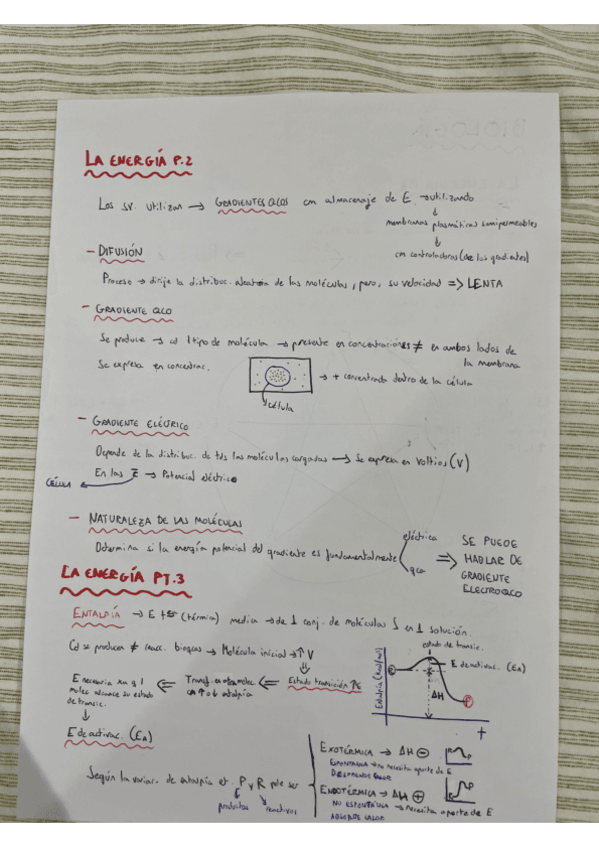 LA ENERGÍA P.2
Los sv. utilizan → GRADIENTES QCOS como almacenaje de E. → utilizando
↓
membranas plasmáticas semipermeables
↓
como controladoras (de los gradientes)
- DIFUSIÓN
Proceso → dirije la distribuc. aleatoria de las moléculas, pero, su velocidad => LENTA
- GRADIENTE QCO
Se produce → cd 1 tipo de molécula → presente en concentraciones ≠ en ambos lados de la membrana
Se expresa en concentrac.
→ + concentrado dentro de la célula
célula
- GRADIENTE ELÉCTRICO
Depende de la distribuc. de tds las moléculas cargadas → Se expresa en Voltios (V)
En las → Potencial eléctrico
CÉLULA
- NATURALEZA DE LAS MOLÉCULAS
Determina si la energía potencial del gradiente es fundamentalmente
eléctrica
qca
=> SE PUEDE
HABLAR DE
GRADIENTE
ELECTROQCO
LA ENERGÍA PT.3
ENTALPÍA → E (térmica) media → de 1 conj. de moléculas en 1 solución.
Cd se producen ≠ reacc. bioqcas → Molécula inicial → ↑ V
Estado transición ↑E
E necesaria
molec alcance su estado
de transic.
↓
E de activac. (EA)
estado de transic.
E de activac. (EA)
ΔH
P
Según la variac. de entalpía et. P y R pde ser
productos
reactivos
EXOTÉRMICA → ΔH ⊖
ESPONTÁNEA → no necesita aporte de E
DESPRENDE CALOR
ENDOTÉRMICA → ΔH ⊕
NO ESPONTÁNEA → necesita aporte de E
ABSORBE CALOR